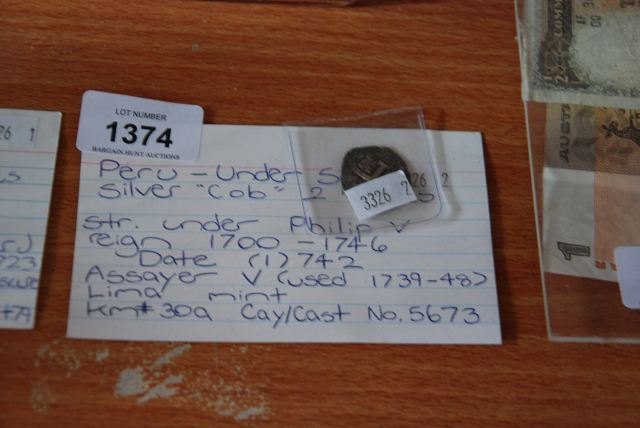 LOT NUMBER
1374
BARGAIN HUNT AUCTIONS
Peru - Under
Silver "Cob" 2
Str. under Philip V
reign 1700 - 1746
Date (1)742
Assayer V (used 1739-48)
Lima mint
Km# 30a Cay/Cast No. 5673
3326 2
26 2
26 1
923
+79
AUST
1